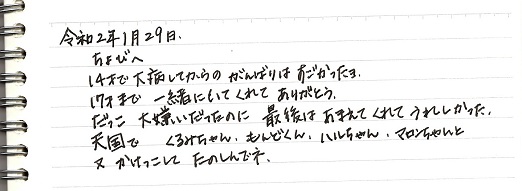 令和2年1月29日.
ちょびへ
14才で大病してからの がんばりは すごかったョ.
17才まで 一緒にいてくれて ありがとう.
だっこ 大嫌いだったのに 最後は あまえてくれて うれしかった.
天国で くるみちゃん. もんどくん. ハルちゃん. マロンちゃんと
又 かけっこして たのしんでネ.